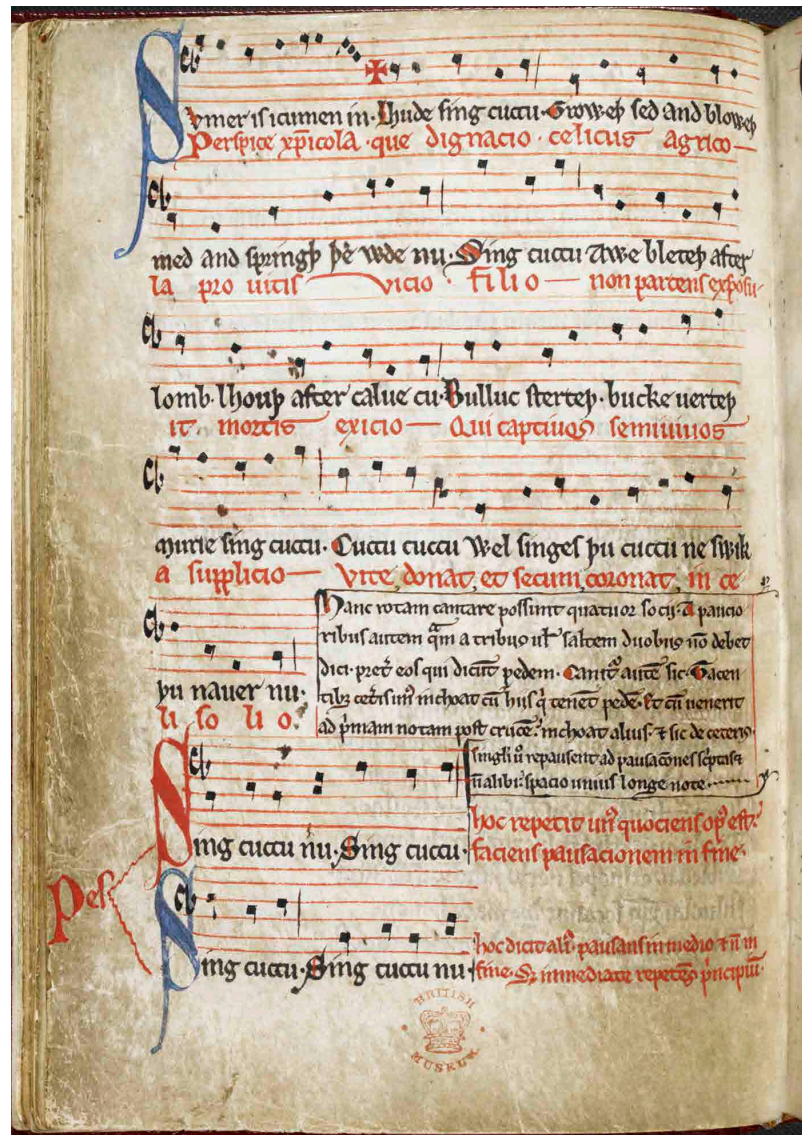 Svmer is icumen in· Lhude sing cuccu· Groweþ sed and bloweþ
Perspice xp̄icola· que dignacio· celicus agrico
med and springþ þe wde nu· Sing cuccu Awe bleteþ after
la pro uitis vicio· filio non parcens exposu
lomb· lhouþ after calue cu· Bulluc sterteþ· bucke uerteþ
it mortis exicio Qui captiuos semiuiuos
murie sing cuccu· Cuccu cuccu Wel singes þu cuccu ne swik
a supplicio vite donat, et secum coronat, in ce
þu nauer nu·
li so li o·
Hanc rotam cantare possunt quatuor socij· A paucio
ribus autem qᵃm a tribus uł saltem duobus nō debet
dici· pret̄ eos qui dicūt pedem· Canit᷑ autē sic· Tacen
tibȝ cet̄is unꝰ inchoat cū hijs qͥ tenēt pedē· Et cū uenerit
ad p̄mam notam post crucē· inchoat alius· ⁊ sic de ceteris·
singłi ū repausent ad pausacōnes scͥptas ⁊
n̄ alibi· spacio unius longe note
Sing cuccu nu· Sing cuccu·
hoc repetit unꝰ quociens opꝰ est·
faciens pausacionem in fine·
Pes
Sing cuccu· Sing cuccu nu
hoc dicit aliꝰ· pausans in medio ⁊ n̄ in
fine· Sȝ immediate repetēs pͥncipiū·
BRITISH
MUSEUM